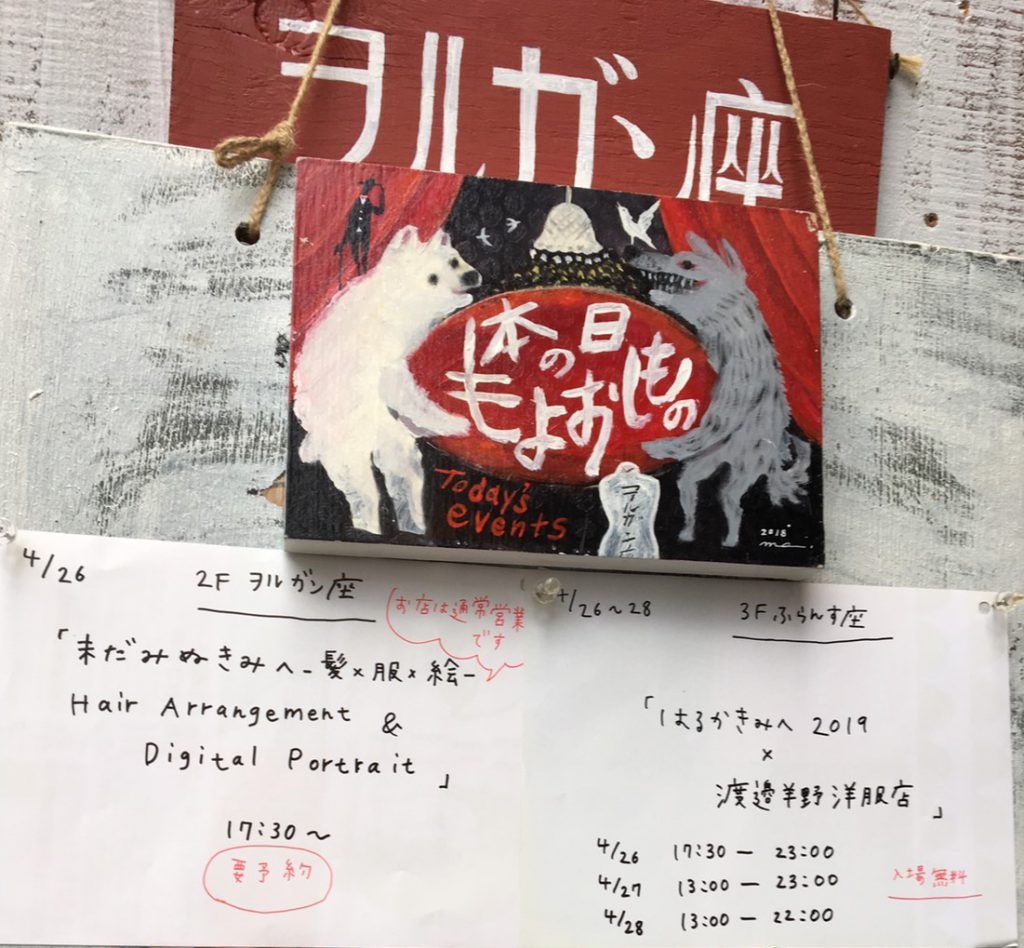 ヲルガン座
本の日
もよおしもの
Today's
events
2018
ma.
4/26
2F ヲルガン座
お店は通常営業
です
「未だみぬきみへ-髪×服×絵-
Hair Arrangement &
Digital Portrait」
17:30〜
要予約
4/26〜28
3F ふらんす座
「はるかきみへ 2019
×
渡邉羊野洋服店」
4/26 17:30 — 23:00
4/27 13:00 — 23:00
4/28 13:00 — 22:00
入場無料